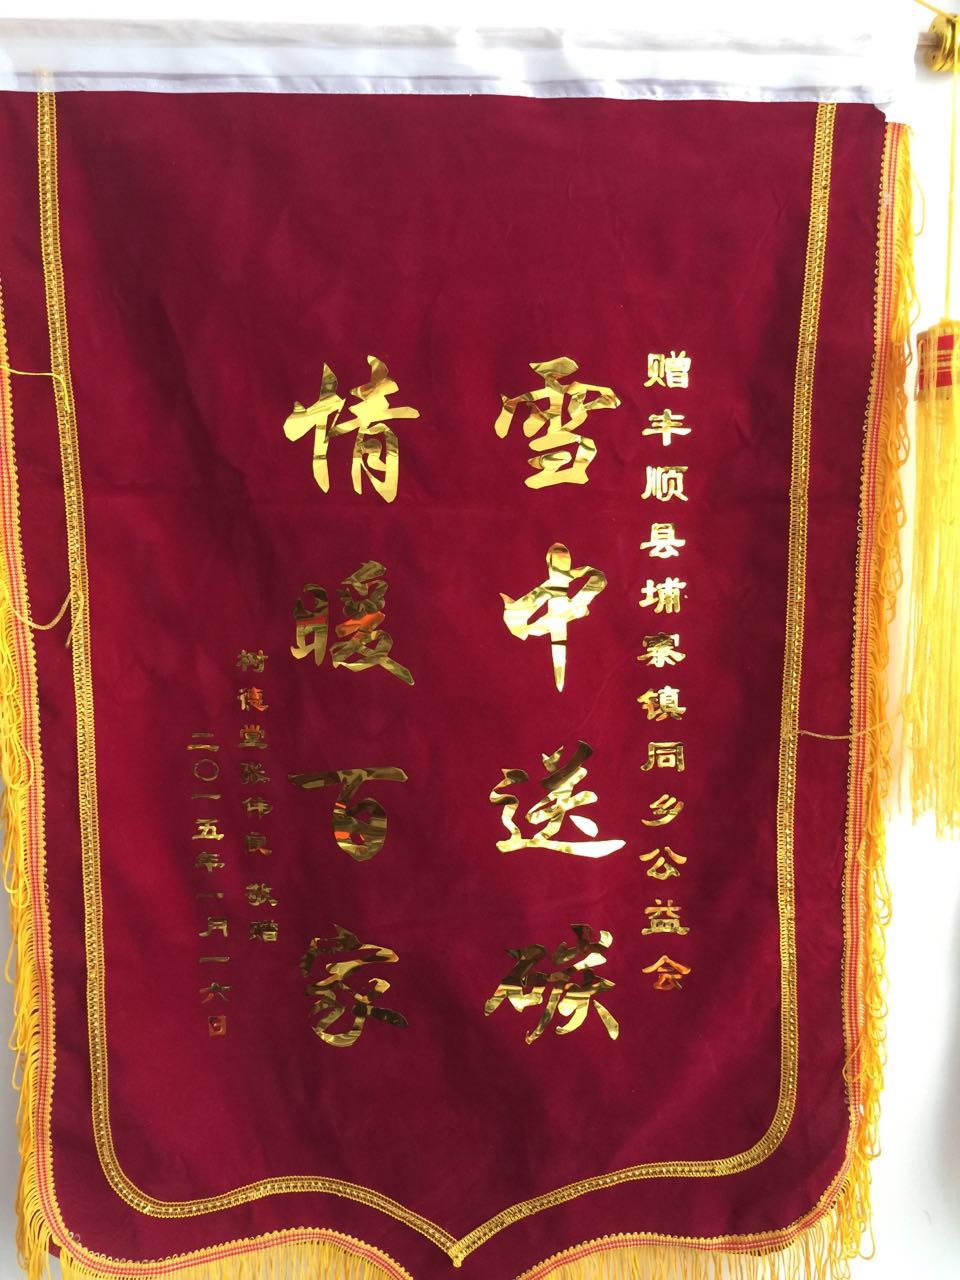 赠丰顺县埔寨镇同乡公益会
雪中送碳
情暖百家
树德堂张伟良 敬赠
二〇一五年一月一六日